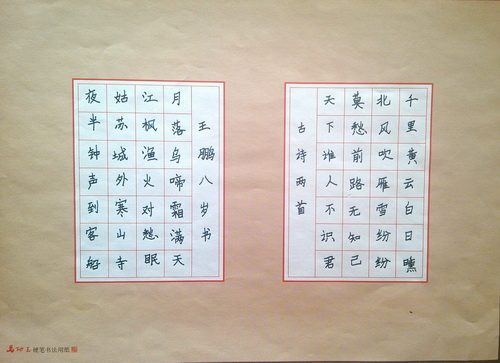 千里黄云白日曛
北风吹雁雪纷纷
莫愁前路无知己
天下谁人不识君
古诗两首
王鹏八岁书
月落乌啼霜满天
江枫渔火对愁眠
姑苏城外寒山寺
夜半钟声到客船
硬笔书法用纸